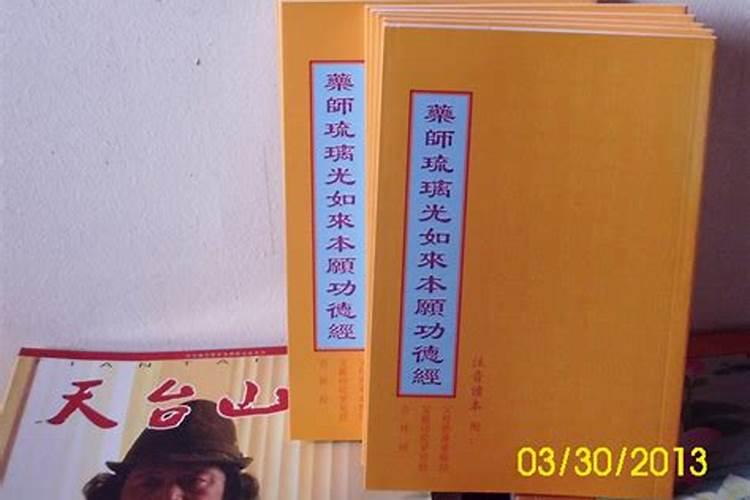 藥師琉璃光如來本願功德經
藥師琉璃光如來本願功德經
注音讀本
附：
TIANTAI
天台山
03/30/2013